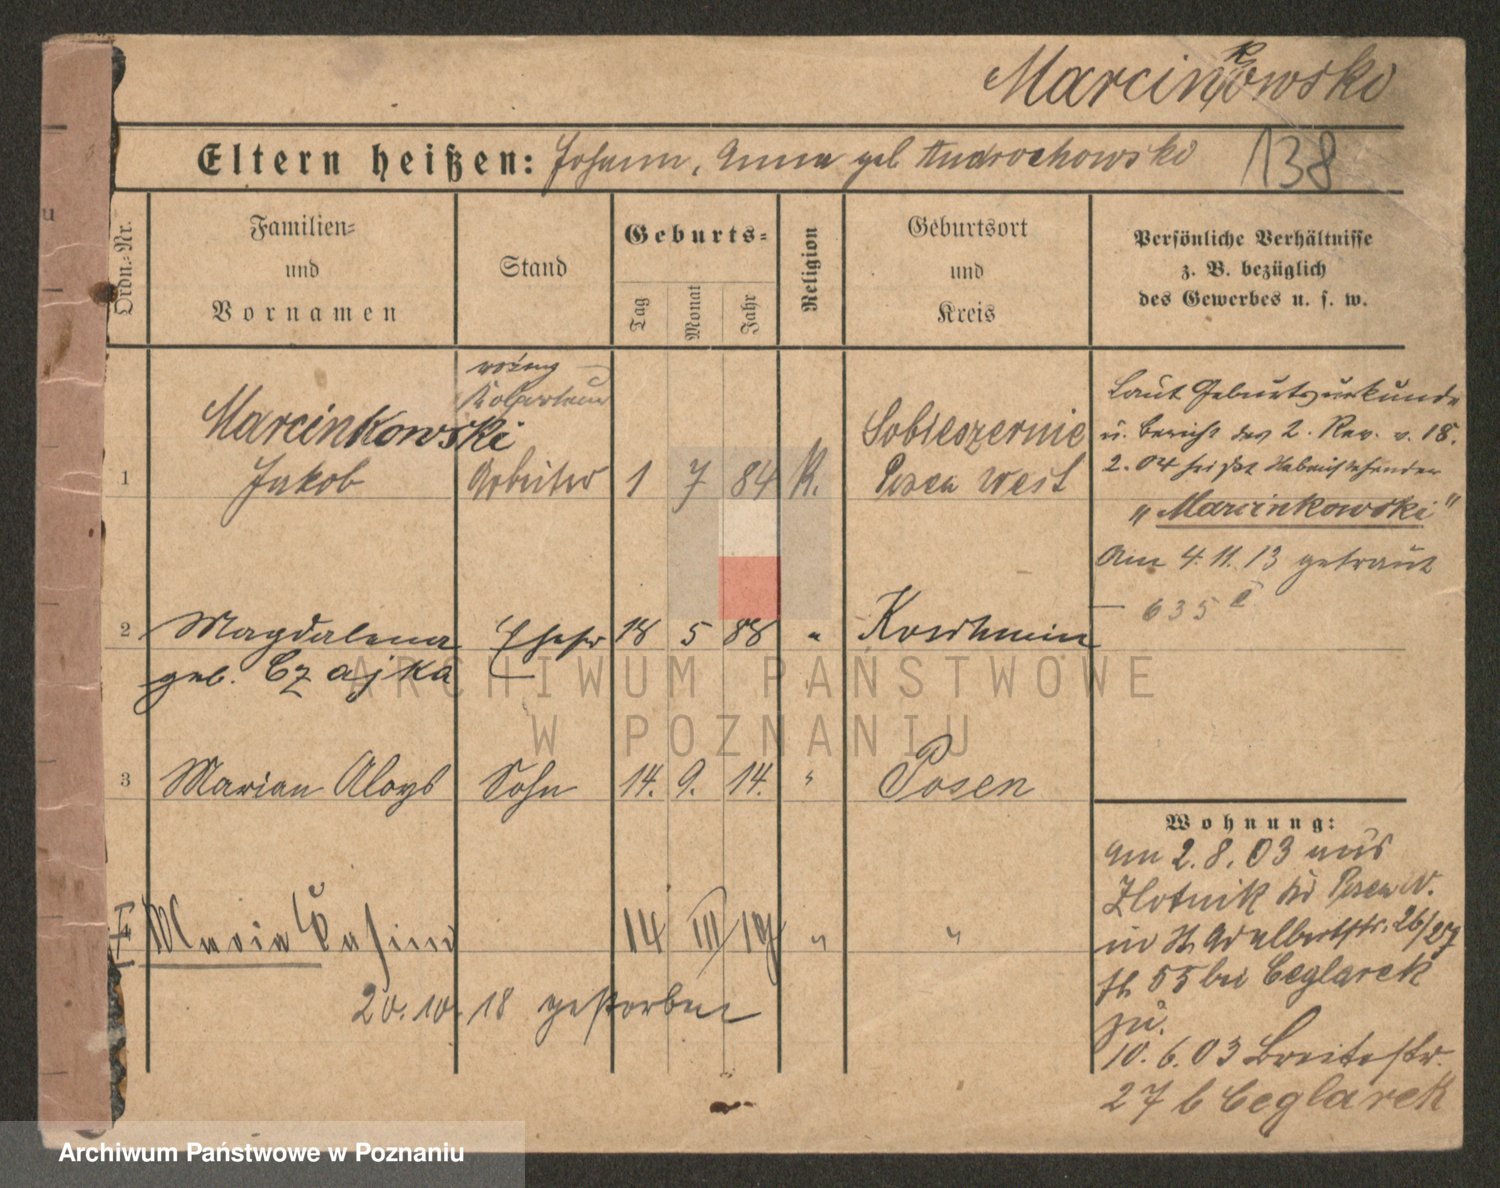 Marcinkowski
Eltern heißen: Johann, Anna geb Androchowski 138
Ordn.-Nr.
Familien-
und
Vornamen
Stand
Geburts-
Tag
Monat
Jahr
Religion
Geburtsort
und
Kreis
Persönliche Verhältnisse
z. B. bezüglich
des Gewerbes u. s. w.
woźny
Marcinkowski Sobieszernie
1 Jakob Arbeiter 1 7 84 K. Posen West
Laut Geburtsurkunde
u. Bericht des 2. Rev. v. 18.
2. 04 heißt Nebenstehender
"Marcinkowski"
Am 4. 11. 13 getraut
– 635
2 Magdalena Ehefr 18 5 88 " Koschmin
geb. Czajka
3 Marian Aloys Sohn 14. 9. 14. " Posen
4 Maria 14 III 19 " "
20. 10. 18 gestorben
Wohnung:
am 2. 8. 03 aus
Zlotnik Kr Posen W.
in St. Adalbertstr. 26/27
bei Ceglarek
zu.
10. 6. 03 Breitestr.
27 b Ceglarek
ARCHIWUM PAŃSTWOWE
W POZNANIU
Archiwum Państwowe w Poznaniu